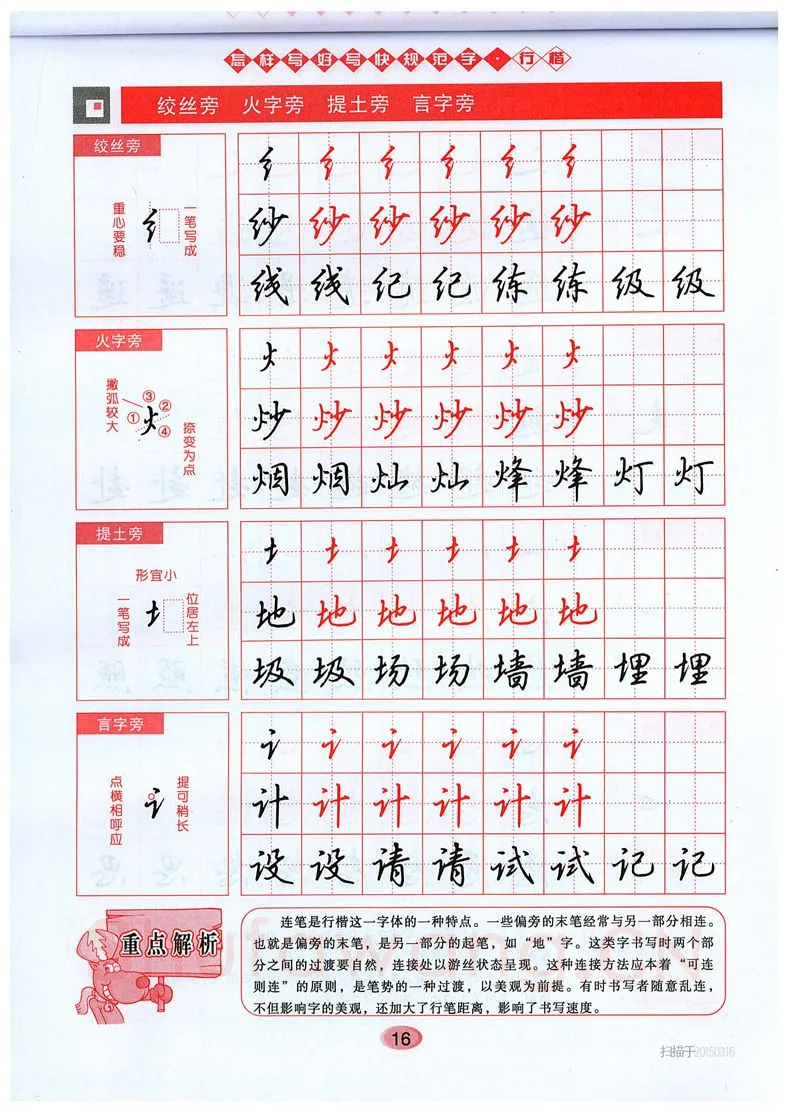 怎样写好写快规范字·行楷
绞丝旁 火字旁 提土旁 言字旁
绞丝旁
重心要稳
一笔写成
纟 纟 纟 纟 纟 纟
纱 纱 纱 纱 纱 纱
线 线 纪 纪 练 练 级 级
火字旁
撇弧较大
① ② ③ ④
捺变为点
火 火 火 火 火 火
炒 炒 炒 炒 炒 炒
烟 烟 灿 灿 烽 烽 灯 灯
提土旁
形宜小
一笔写成
位居左上
土 土 土 土 土 土
地 地 地 地 地 地
圾 圾 场 场 墙 墙 埋 埋
言字旁
点横相呼应
提可稍长
讠 讠 讠 讠 讠 讠
计 计 计 计 计 计
设 设 请 请 试 试 记 记
重点解析
连笔是行楷这一字体的一种特点。一些偏旁的末笔经常与另一部分相连。
也就是偏旁的末笔，是另一部分的起笔，如“地”字。这类字书写时两个部
分之间的过渡要自然，连接处以游丝状态呈现。这种连接方法应本着“可连
则连”的原则，是笔势的一种过渡，以美观为前提。有时书写者随意乱连，
不但影响字的美观，还加大了行笔距离，影响了书写速度。
16
扫描于20150316